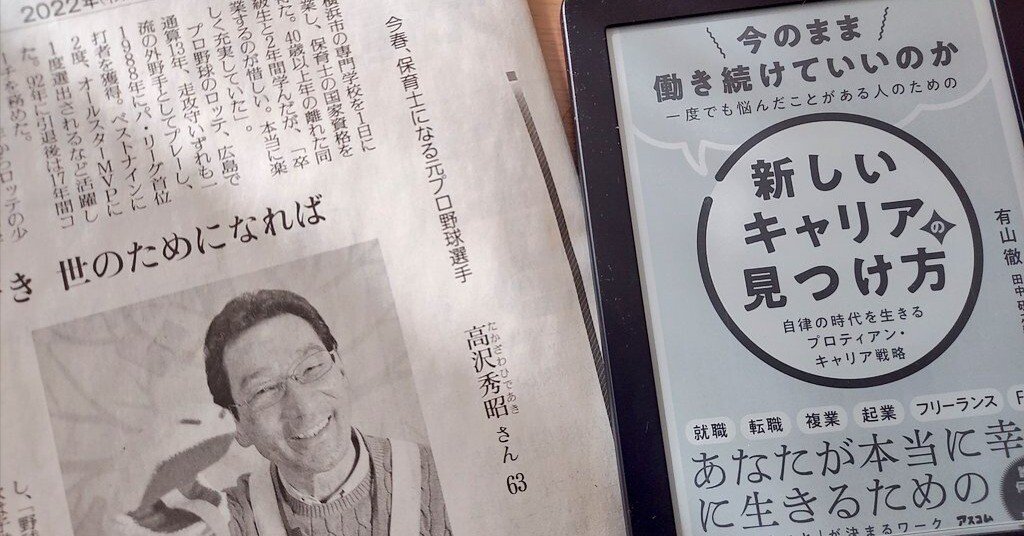 2022年
今春、保育士になる元プロ野球選手
たかざわひであき
高沢秀昭さん 63
横浜市の専門学校を1日に
業し、保育士の国家資格を
た。40歳以上年の離れた同
級生と2年間学んだが、「卒
業するのが惜しい。本当に楽
しく充実していた」。
プロ野球のロッテ、広島で
通算13年、走攻守いずれも一
流の外野手としてプレーし、
1988年にパ・リーグ首位
打者を獲得。ベストナインに
2度、オールスターMVPに
1度選出されるなど活躍し
た。92年に引退後は17年間コ
ーチを務めた。
からロッテの少
き 世のためになれば
し、「野
今のまま
働き続けていいのか
一度でも悩んだことがある人のための
新しい
キャリアの
見つけ方
自律の時代を生きる
プロティアン・
キャリア戦略
有山徹
就職 転職 複業 起業 フリーランス
あなたが本当に幸
に生きるための
が決まるワーク アスコム